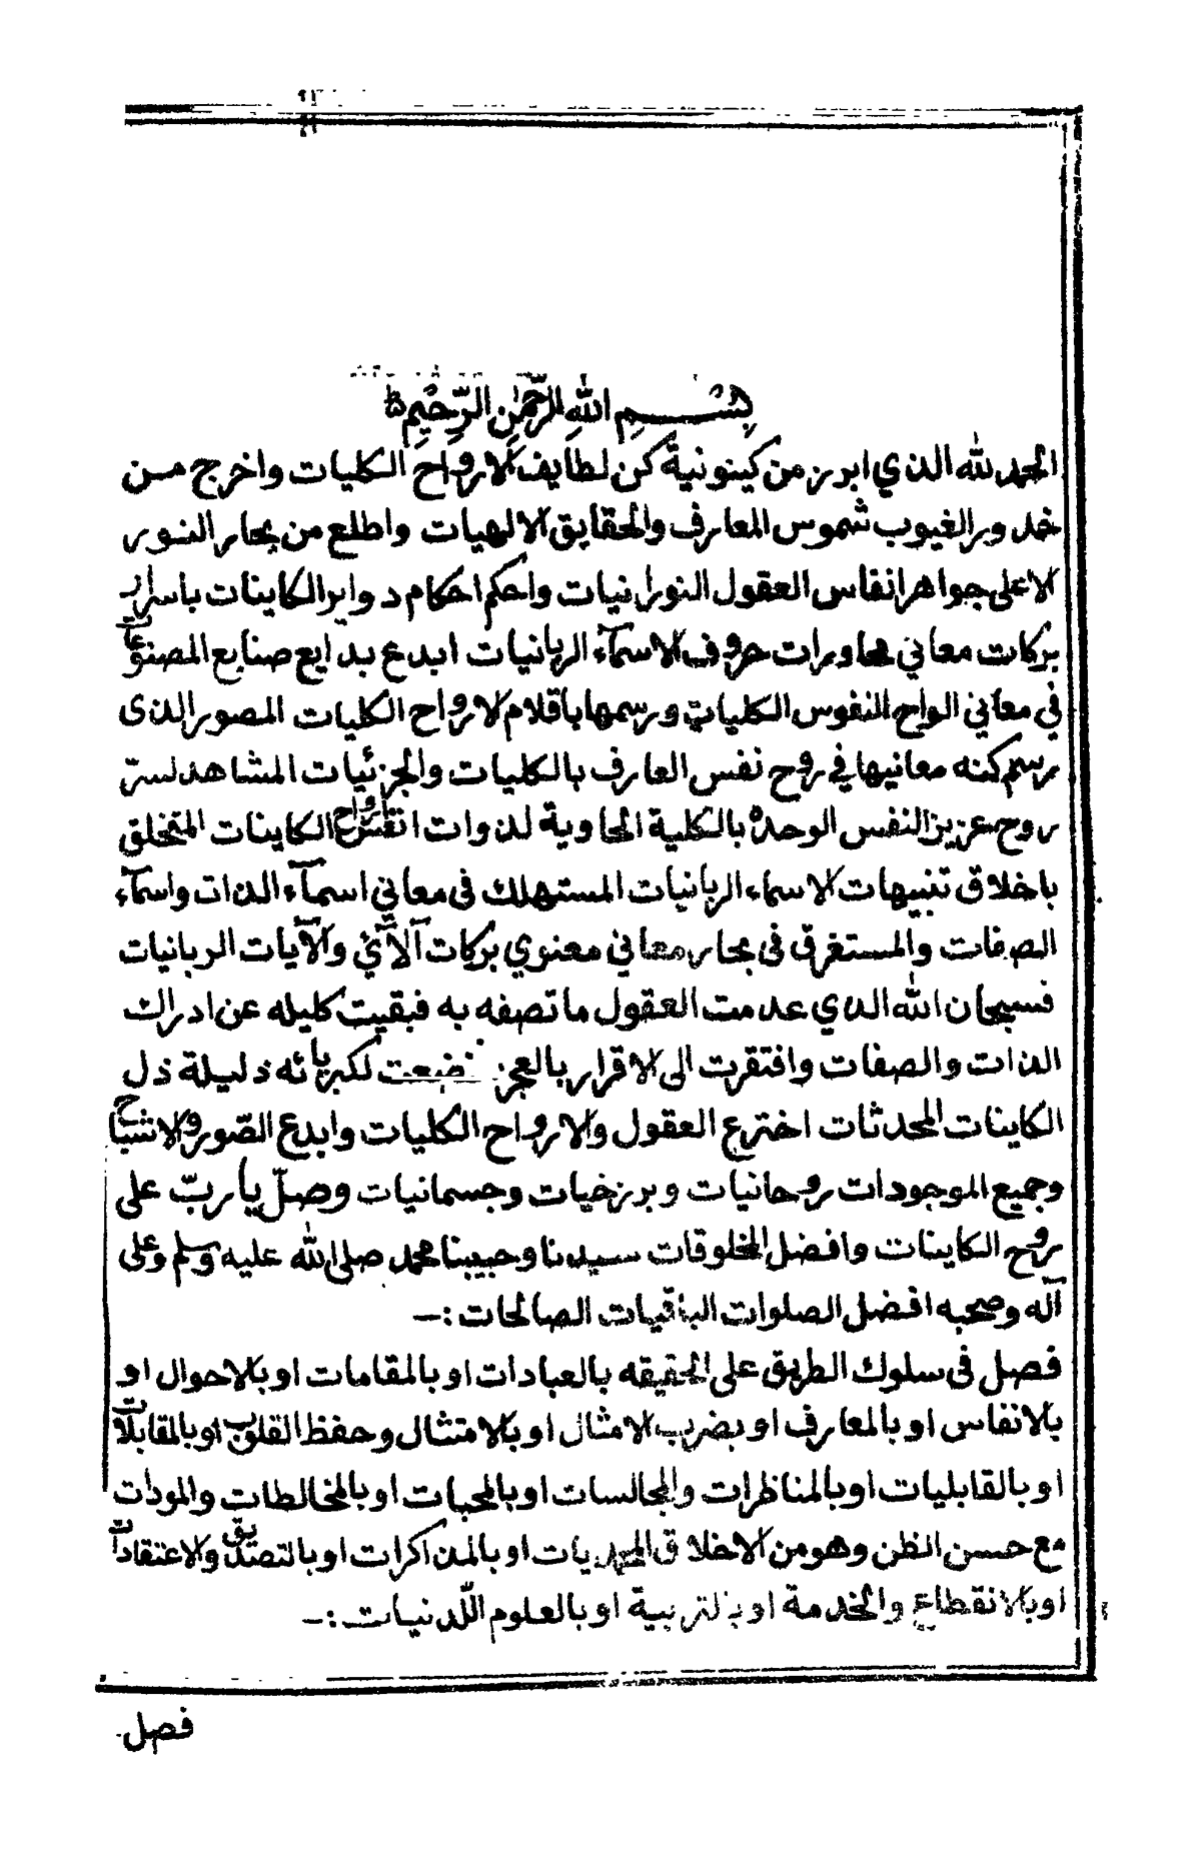 بِسْــــمِ اللهِ الرَّحْمٰنِ الرَّحِيْمِ
الحمد لله الذي ابرز من كينونية كن لطايف الارواح الكليات واخرج من
خدور الغيوب شموس المعارف والحقايق الالهيات واطلع من بحار النور
الاعلى جواهر انفاس العقول النورانيات واحكم احكام دواير الكاينات باسرار
بركات معاني محاورات حروف الاسمآء الربانيات ابدع بدايع صنايع المصنوعات
في معاني الواح النفوس الكليات ورسمها باقلام الارواح الكليات المصور الذى
رسم كنه معانيها في روح نفس العارف بالكليات والجزئيات المشاهد لستر
روح عزيز النفس الوحدة بالكلية الحاوية لذوات ارواح الكاينات المتخلق
باخلاق تنبيهات الاسماء الربانيات المستهلك فى معاني اسمآء الذات واسمآء
الصفات والمستغرق فى بحار معاني معنوي بركات الآئ والآيات الربانيات
فسبحان الله الذي عدمت العقول ما تصفه به فبقيت كليله عن ادراك
الذات والصفات وافتقرت الى الاقرار بالعجز لكبريائه ذليلة ذل
الكاينات المحدثات اخترع العقول والارواح الكليات وابدع الصّور والاشباح
وجميع الموجودات روحانيات وبرزخيات وجسمانيات وصلّ يا ربّ على
روح الكاينات وافضل المخلوقات سيدنا وحبيبنا محمد صلى الله عليه وسلم وعلى
آله وصحبه افضل الصلوات الباقيات الصالحات :ـ
فصل فى سلوك الطريق على الحقيقه بالعبادات او بالمقامات او بالاحوال او
بالانفاس او بالمعارف او بضرب الامثال او بالامتثال وحفظ القلوب او بالمقابلات
او بالقابليات او بالمناظرات والمجالسات او بالمحبات او بالمخالطات والمودات
مع حسن الظن وهو من الاخلاق المحمديات او بالمذاكرات او بالتصديق والاعتقادات
او بالانقطاع والخدمة او بالتربية او بالعلوم اللّدنيات :ـ
فصل